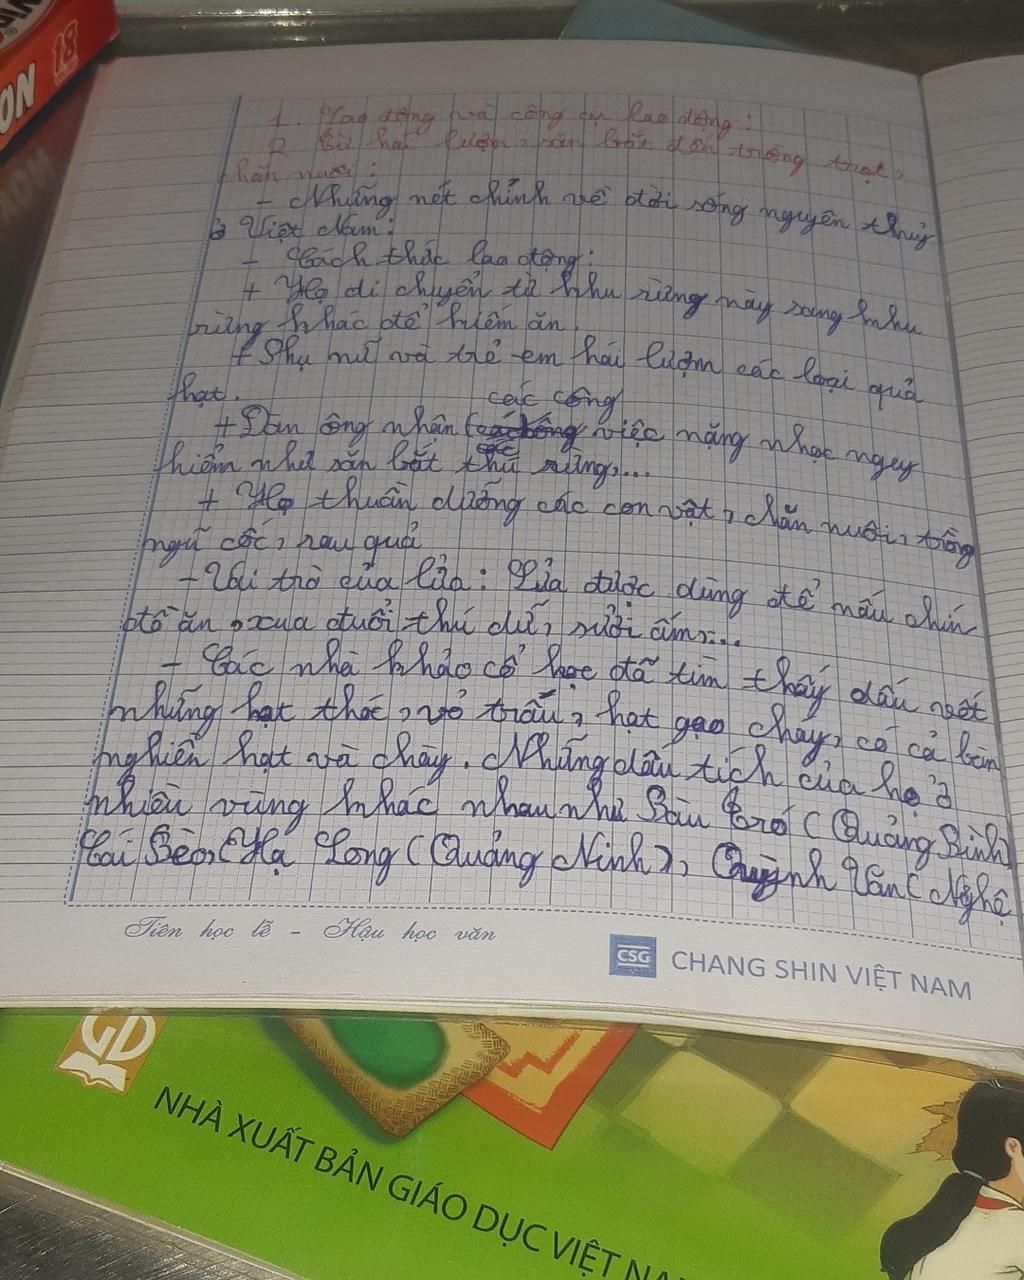 18
ON
1. Lao động và công cụ lao động:
2. Từ hái lượm, săn bắt đến trồng trọt,
chăn nuôi:
- Những nét chính về đời sống nguyên thuỷ
ở Việt Nam:
- Cách thức lao động:
+ Họ di chuyển từ khu rừng này sang khu
rừng khác để kiếm ăn.
+ Phụ nữ và trẻ em hái lượm các loại quả
hạt.
các công
+ Đàn ông nhận việc nặng nhọc nguy
hiểm như săn bắt thú rừng,...
+ Họ thuần dưỡng các con vật, chăn nuôi, trồng
ngũ cốc, rau quả
- Vai trò của lửa: Lửa được dùng để nấu chín
đồ ăn, xua đuổi thú dữ, sưởi ấm,...
- Các nhà khảo cổ học đã tìm thấy dấu vết
những hạt thóc, vỏ trấu, hạt gạo cháy, có cả bàn
nghiền hạt và chày. Những dấu tích của họ ở
nhiều vùng khác nhau như Bàu Tró (Quảng Bình)
Cái Bèo, Hạ Long (Quảng Ninh), Quỳnh Văn (Nghệ
Tiên học lễ - Hậu học văn
CSG CHANG SHIN VIỆT NAM
GD
NHÀ XUẤT BẢN GIÁO DỤC VIỆT NA